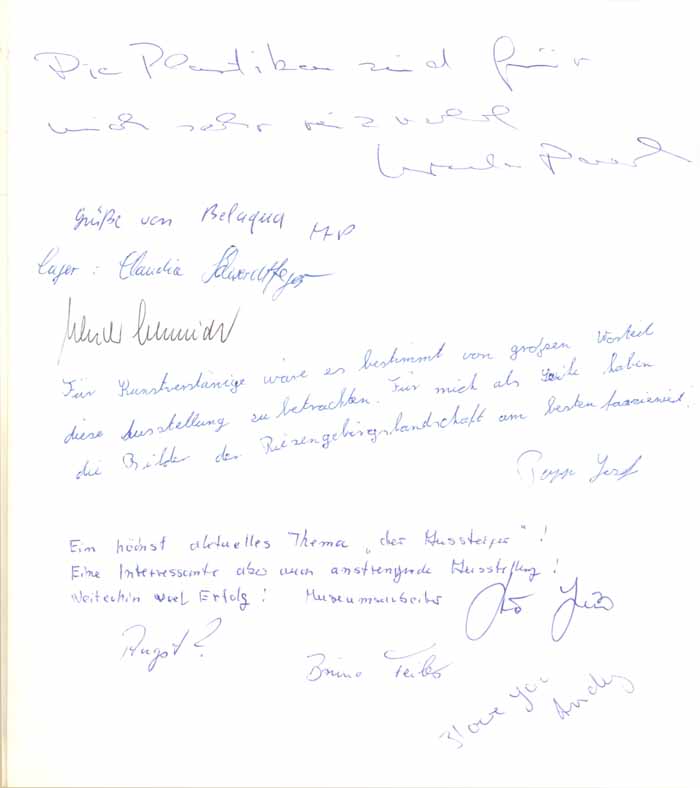 Die Plastiken sind für
mich sehr reizvoll
Grüße von Belaqua
Claudia
Für Kunstverstänige wäre es bestimmt von großen Vorteil
diese Ausstellung zu betrachten. Für mich als haben
die Bilder der Riesengebirgslandschaft am besten
Ein höchst aktuelles Thema „der Aussteiger“ !
Eine Interressante aber auch anstrengende Ausstellung !
Weiterhin viel Erfolg ! Museumsarbeiter
Angst ?
Bruno
I love you
Andy